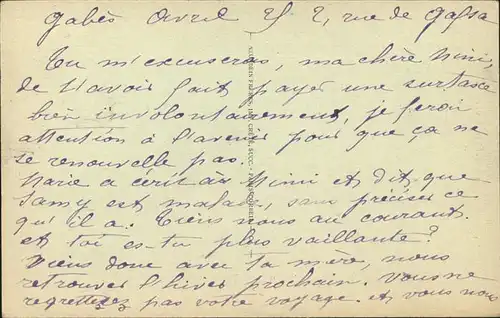 Gabès Avril 25 2, rue de Gafsa
Tu m'excuseras, ma chère Mimi,
de t'avoir fait payer une surtaxe
bien involontairement, je ferai
attention à l'avenir pour que ça ne
se renouvelle pas.
Marie a écrit à Mimi et dit que
Samy est malade, sans préciser ce
qu'il a. Tiens nous au courant.
et toi es-tu plus vaillante?
Viens donc avec ta mère, nous
retrouver l'hiver prochain. Vous ne
regretterez pas votre voyage. et vous nous